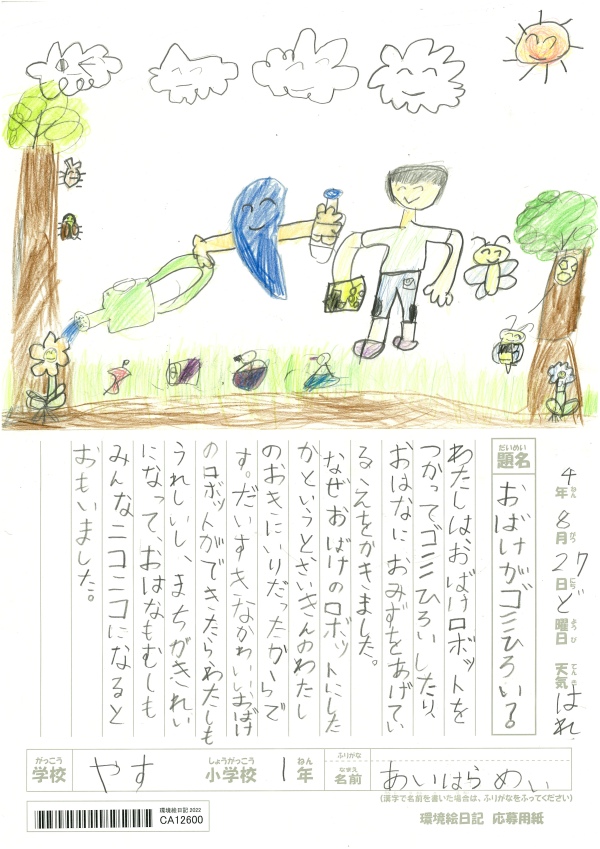 4年ねん8月がつ27日にちど曜日ようび 天気てんき はれ
題名だいめい おばけがゴミひろい
わたしは、おばけロボットを
つかってゴミひろいしたり、
おはなにおみずをあげてい
るえをかきました。
なぜおばけのロボットにした
かというとさいきんのわたし
のおきにいりだったからで
す。だいすきなかわいいおばけ
のロボットができたらわたしも
うれしいし、まちがきれい
になって、おはなもむしも
みんなニコニコになると
おもいました。
がっこう しょうがっこう ねん ふりがな なまえ
学校 やす 小学校 1年 名前 あいはらめい
(漢字で名前を書いた場合は、ふりがなをふってください)
環境絵日記 2022
CA12600
環境絵日記 応募用紙